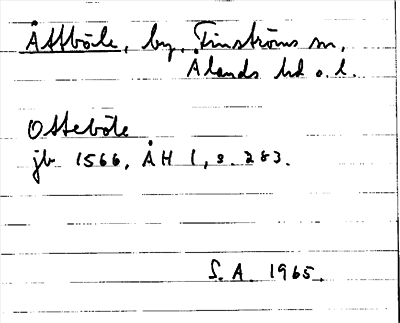 Åttböle, by, Finströms sn,
Ålands hd o. l.
Otteböle
jb 1566, ÅH 1, s. 283.
S. A. 1965.